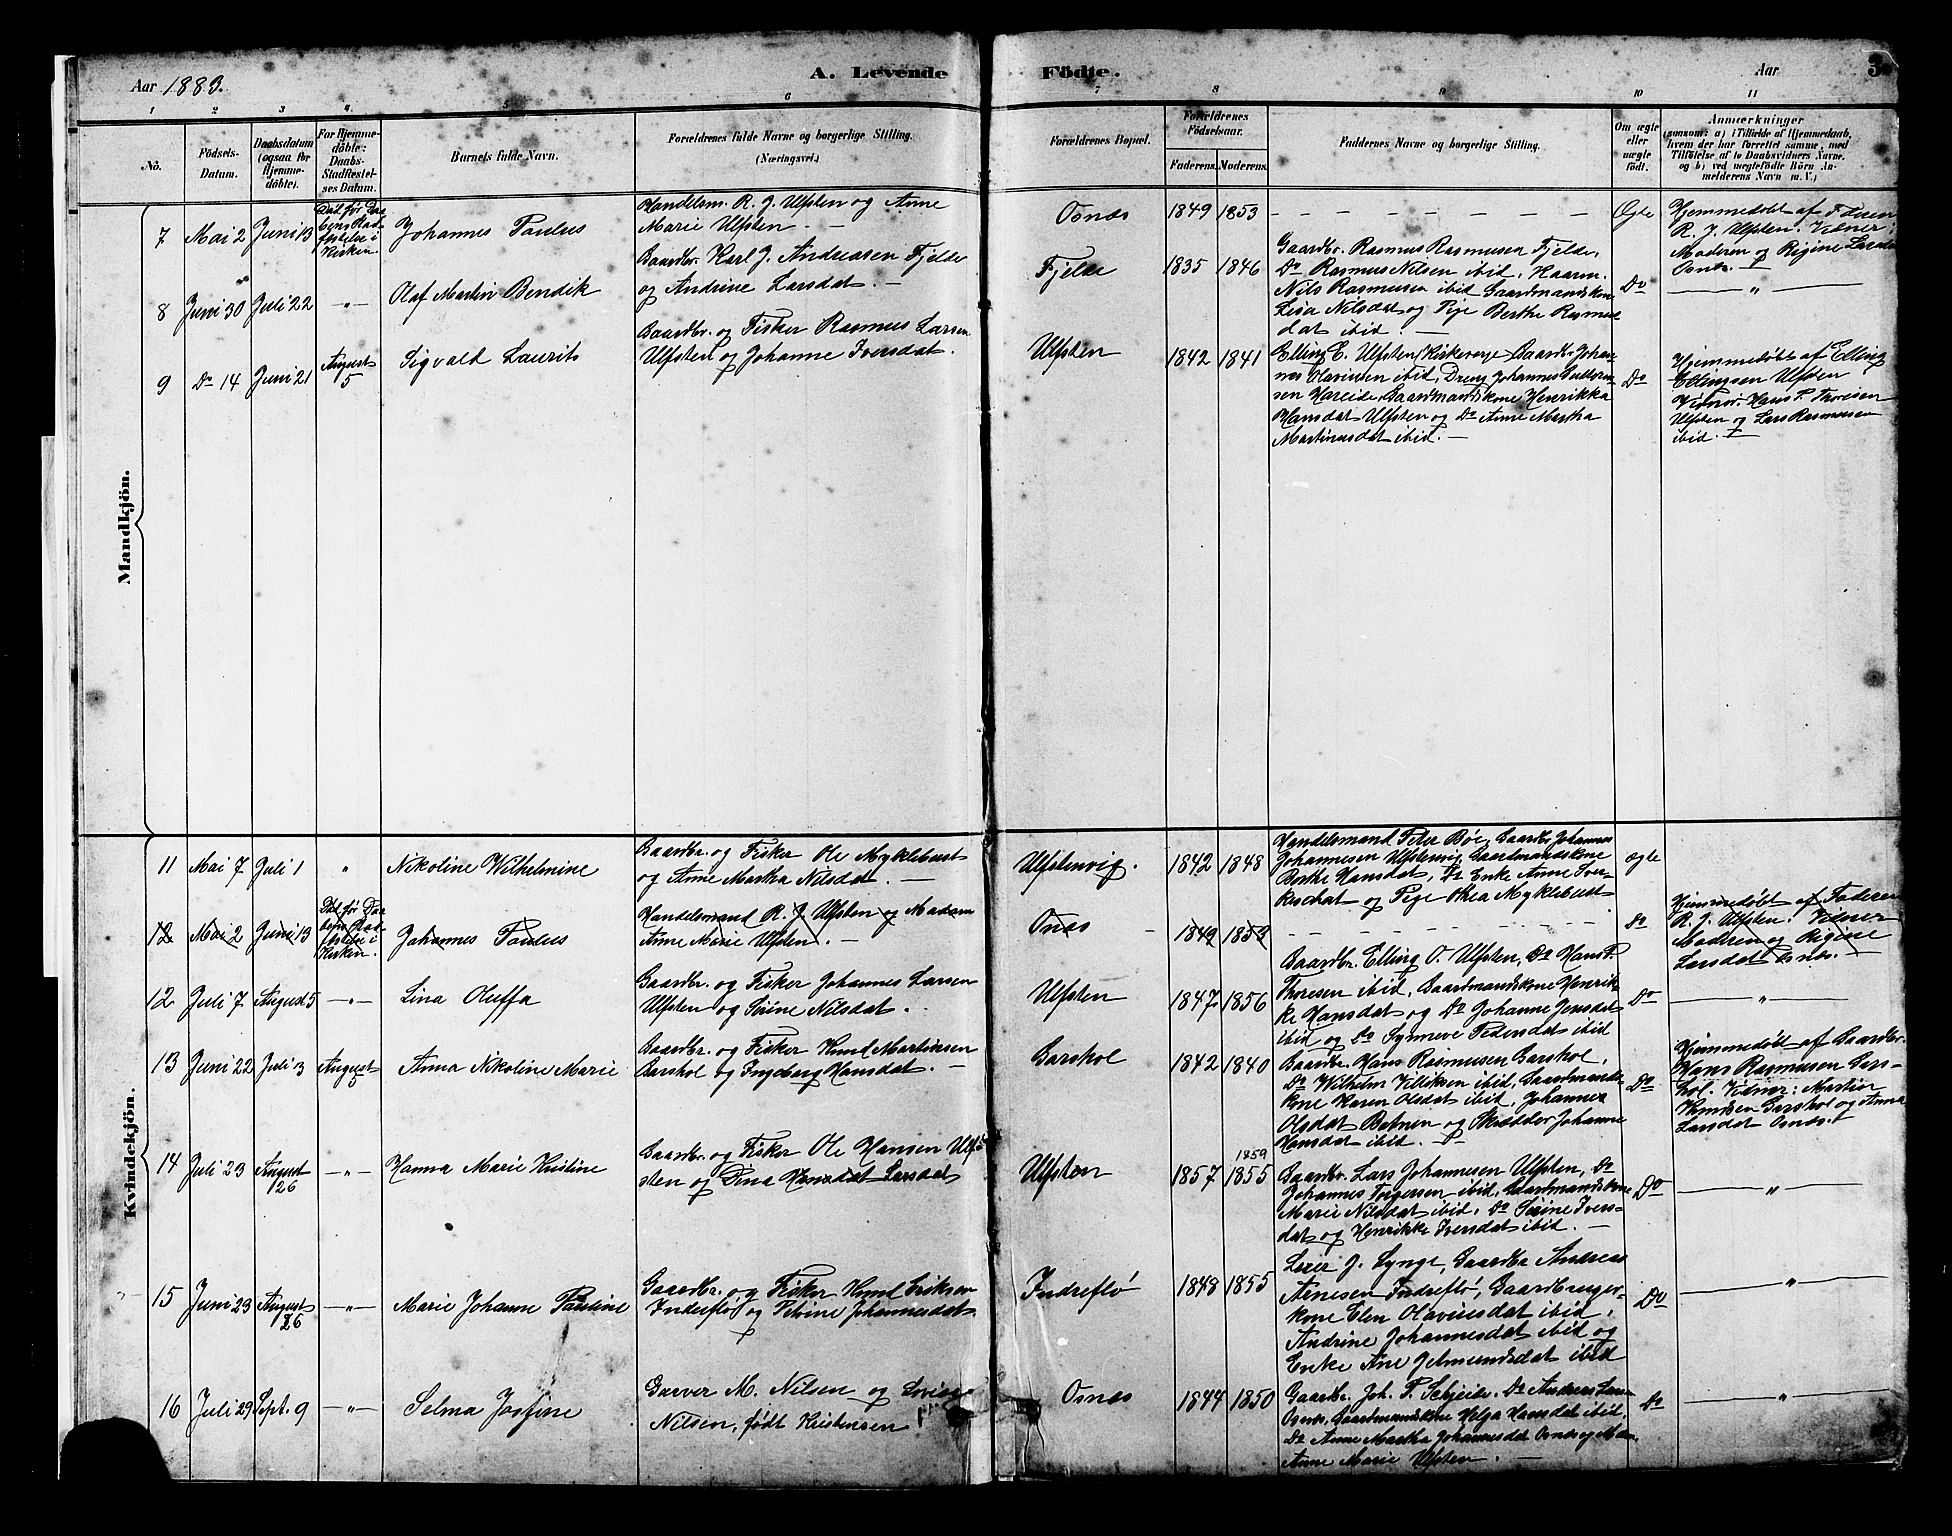 Aar 1883.
A. Levende Födte.
Aar
3
1 2 3 4 5 6 7 8 9 10 11
No.
Födsels-Datum.
Daabsdatum (ogsaa for Hjemme-döbte).
For Hjemme-döbte: Daabs-Stadfæstel-ses Datum.
Barnets fulde Navn.
Forældrenes fulde Navne og borgerlige Stilling. (Næringsvei.)
Forældrenes Bopæl.
Forældrenes Födselsaar.
Faderens. Moderens.
Faddernes Navne og borgerlige Stilling.
Om ægte eller uægte födt.
Anmærkninger
(saasom: a) i Tilfælde af Hjemmedaab, hvem der har forrettet samme, med Tilföielse af to Daabsvidners Navne, og b) ved uægtefödte Börn Anmelderens Navn m. V.)
Mandkjön.
7 Mai 2 Juni 13 Död før Daabens Stadfæstelse i Kirken
Johannes Paulus
Handelsm. R. J. Ulfsten og Anne
Marie Ulfsten. —
Osnæs 1849 1853 — — — — Ægte
Hjemmedöbt af Faderen
R. J. Ulfsten. Vidner:
Moderen og Regine Larsdat
Osnæs.
8 Juni 30 Juli 22 "
Olaf Martin Bendik
Gaardbr. Karl J. Andreassen Fjelde
og Andrine Larsdat. —
Fjelde 1835 1846
Gaardbr. Rasmus Rasmusen Fjelde,
Do Rasmus Nilsen ibid,
Nils Rasmusen ibid Gaardmandskone
Lisa Nilsdat og Pige Berthe Rasmus
dat ibid. —
Do — " —
9 Do 14 Juni 21 August 5
Sigvald Laurits
Gaardbr. og Fisker Rasmus Larsen
Ulfsten og Johanne Iversdat.
Ulfsten 1842 1841
Elling E. Ulfsten Kirkeverge Gaardbr. Johan-
nes Olavinsen ibid, Dreng Johannes
sen Hareide, Gaardmandskone Henrikka
Hansdat Ulfsten og Do Anne Martha
Martinusdat ibid. —
Do
Hjemmedöbt af Elling
Ellingsen Ulfsten
Vidner: Hans P. Thoresen
Ulfsten og Lars Rasmusen
ibid.
Kvindekjön.
11 Mai 7 Juli 1 "
Nikoline Wilhelmine
Gaardbr. og Fisker Ole Myklebust
og Anne Martha Nilsdat. —
Ulfstenvig. 1842 1848
Handelsmand Peter Böe, Gaardbr. Johannes
Johannesen Ulfstenvig Gaardmandskone
Berthe Hansdat, Do Enke Anne
og Pige Thea Myklebust
ægte
12 Mai 2 Juni 13 Död før Daabens Stadfæstelse i Kirken.
Johannes Paulus
Handelsmand R. J. Ulfsten og Madam
Anne Marie Ulfsten. —
Osnæs 1849 1853 — — — — do
Hjemmedöbt af Faderen
R. J. Ulfsten. Vidner
Moderen og Regine
Larsdat Osnæs. —
12 Juli 7 August 5 — " —
Lina Oluffa
Gaardbr. og Fisker Johannes Larsen
Ulfsten og Sirine Nilsdat.
Ulfsten 1847 1856
Gaardbr. Elling O. Ulfsten, Do Hans P.
Thoresen ibid, Gaardmandskone Henrik-
ke Hansdat og Do Johanne Jensdat
ibid og Do Synneve Pedersdat ibid
Do — " —
13 Juni 22 Juli 3 August 5
Anna Nikoline Marie
Gaardbr. og Fisker Knud Martinsen
Garshol og Ingeborg Hansdat. —
Garshol 1842 1840
Gaardbr. Hans Rasmusen Garshol,
Do Wilhelm Villiksen ibid, Gaardmands-
kone Karen Olsdat ibid, Johannes
Olsdat Botnen og Skrædder Johanne
Hansdat ibid. —
Do
Hjemmedöbt af Gaardbr.
Hans Rasmusen Gars-
hol. Vidner: Martin
Knudsen Garshol og Anna
Larsdat Osnæs.
14 Juli 23 August 26 — " —
Hanna Marie Kristine
Gaardbr. og Fisker Ole Hansen Ulf-
sten og Dina Hansdat Larsdat
Ulfsten 1857 1855 1859
Gaardbr. Lars Johannesen Ulfsten, Do
Johannes ibid, Gaardmandskone
Marie Nilsdat ibid, Do Sirine Ivers-
dat og Henrikke Iversdat ibid. —
Do — " —
15 Juni 23 August 26 — " —
Marie Johanne Pauline
Gaardbr. og Fisker Knud Eriksen
Indreflø og Petrine Johannesdat
Indreflö 1848 1855
J. Lynge, Gaardbr Andreas
Arnesen Indreflö, Gaardbruger-
kone Elen Olavinsdat ibid,
Andrine Johannesdat ibid og
Enke Ane Jetmundsdat ibid
Do "
16 Juli 29 Sept. 9 — " —
Selma Josfine
Garver M. Nilsen og Lovise
Nilsen, født Kristensen
Osnæs 1844 1850
Gaardbr. Joh. P. Skjeile. Do Andreas
Osnæs, Gaardmandskone Helga Hansdat ibid,
Do Anne Martha Johannesdat Osnæs og
Anne Marie Ulfsten. —
Do "